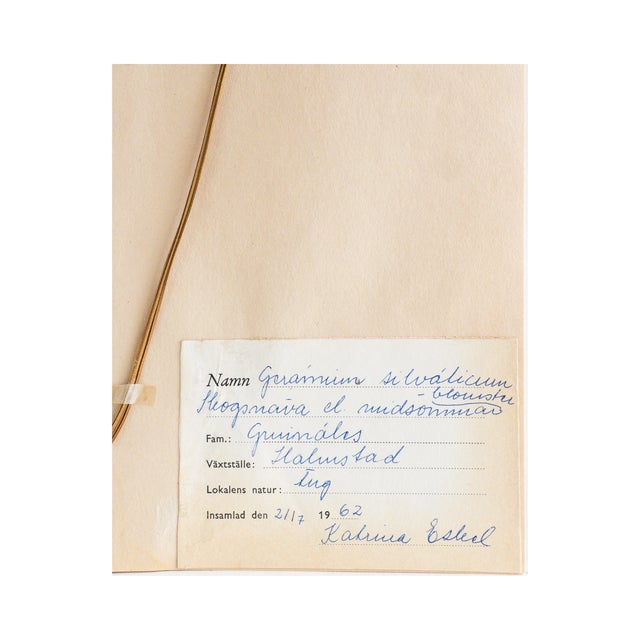 Namn Geránium silváticum
Skogsnäva el. midsommar
-blomster
Fam.: Gruináles
Växtställe: Halmstad
Lokalens natur: Äng
Insamlad den 2/7 1962
Katrina